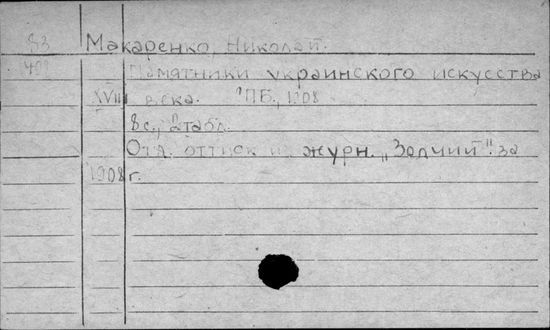 83 Макаренко, Николай.
Памятники украинского искусства
XVIII века. СПБ., 1908
8 с., 2 табл.
Отд. оттиск из журн. „Зодчий" за
1908 г.